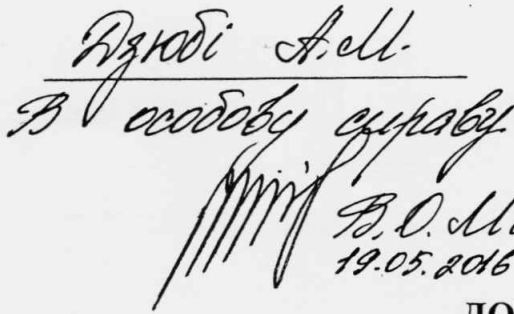 Дзюбі А.М.
В особову справу
В.О.М.
19.05.2016
ДО